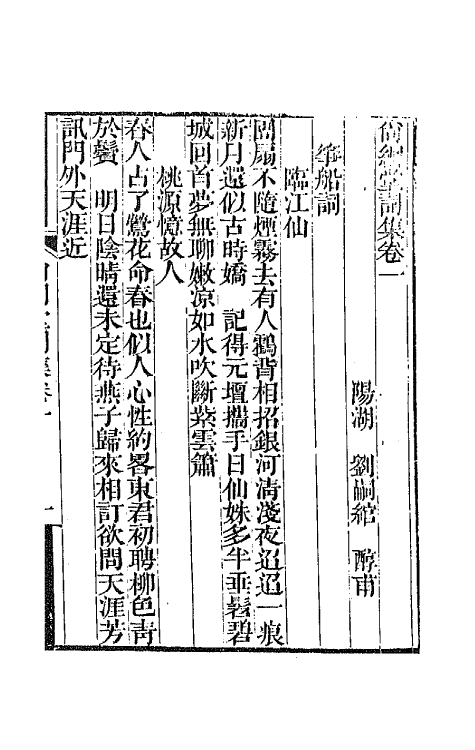 尚絅堂詞集卷一
陽湖 劉嗣綰 醇甫
箏船詞
臨江仙
團扇不隨煙霧去有人鶴背相招銀河淸淺夜迢迢一痕
新月還似古時嬌 記得元壇攜手日仙妹多半垂髫碧
城回首夢無聊嫩凉如水吹斷紫雲簫
桃源憶故人
春人占了鶯花命春也似人心性約畧東君初聘柳色靑
於鬢 明日陰晴還未定待燕子歸來相訂欲問天涯芳
訊門外天涯近